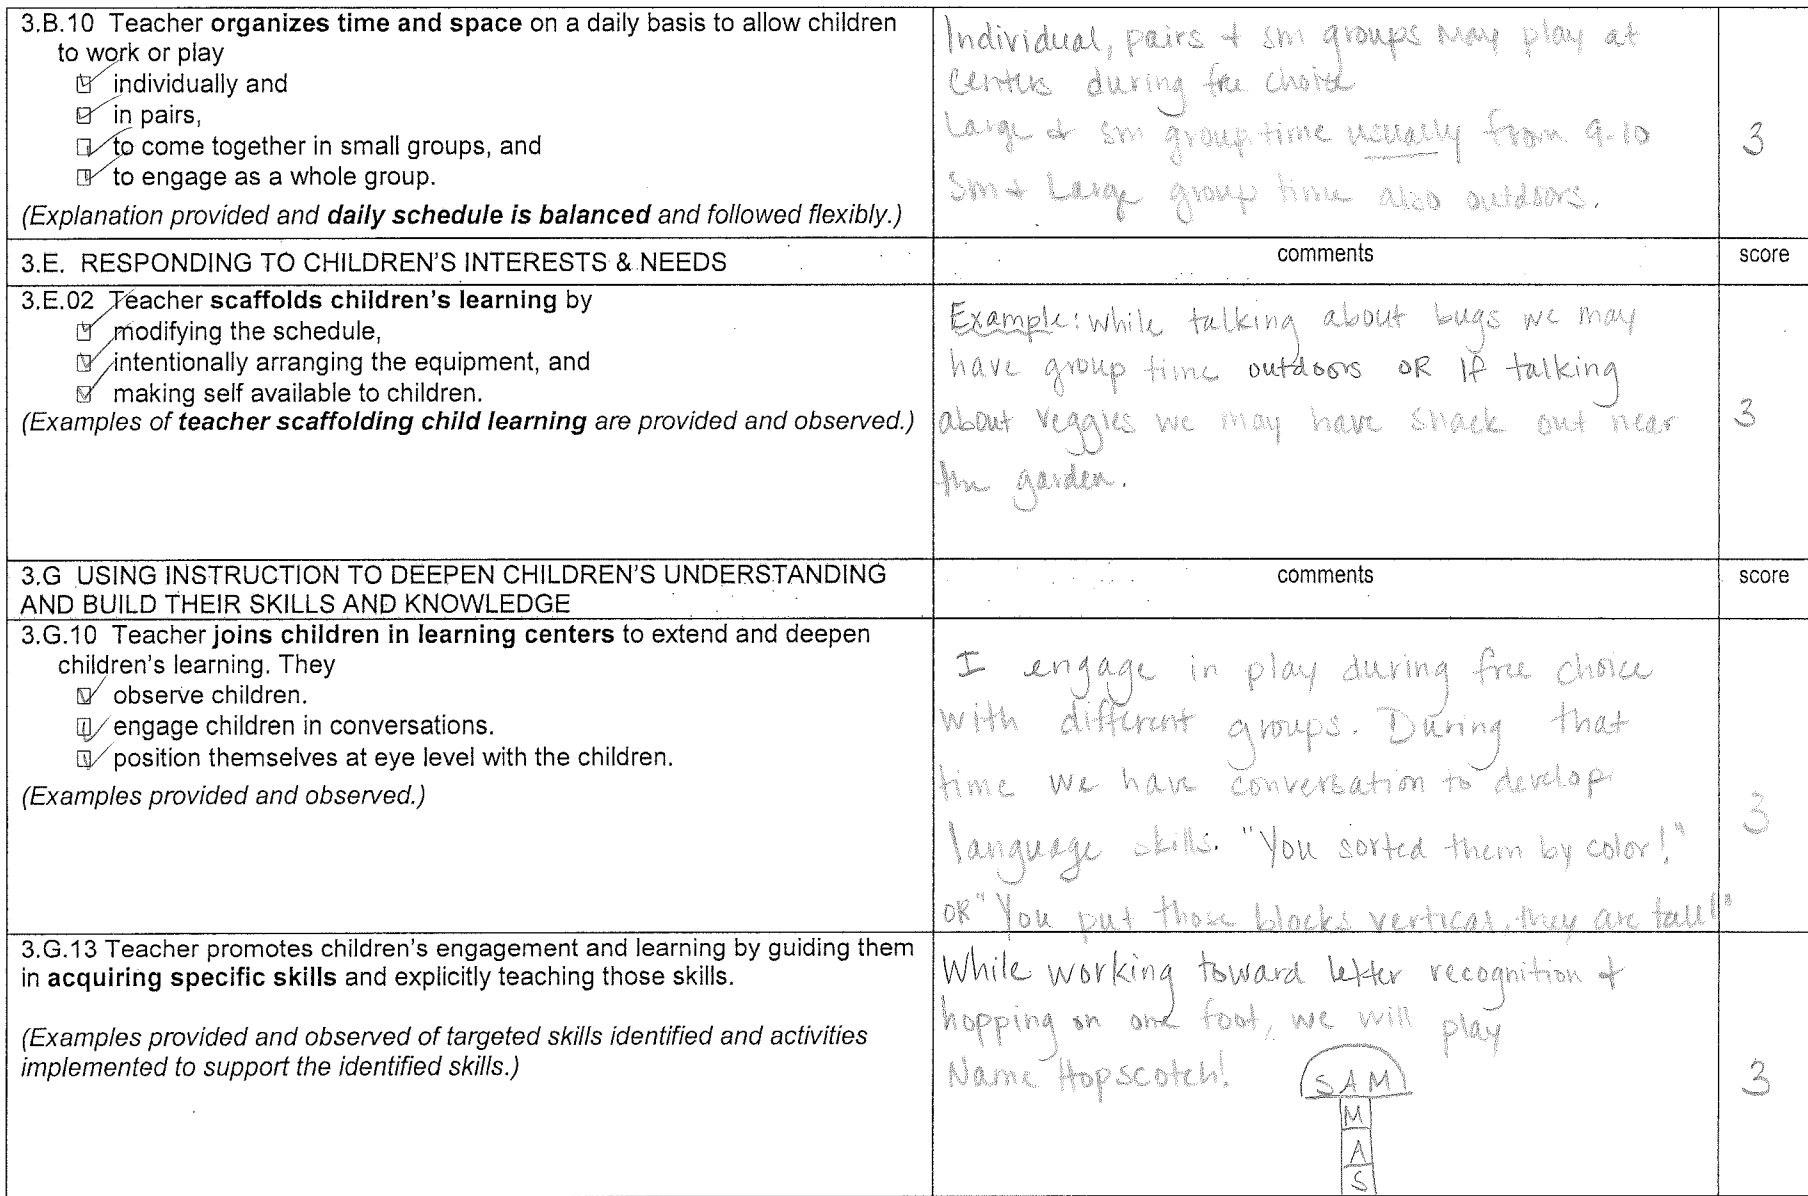 3.B.10 Teacher organizes time and space on a daily basis to allow children
to work or play
individually and
in pairs,
to come together in small groups, and
to engage as a whole group.
(Explanation provided and daily schedule is balanced and followed flexibly.)
Individual, pairs + sm groups may play at
centers during free choice
Large + sm group time usually from 9-10
Sm + Large group time also outdoors.
3
3.E. RESPONDING TO CHILDREN'S INTERESTS & NEEDS
comments
score
3.E.02 Teacher scaffolds children's learning by
modifying the schedule,
intentionally arranging the equipment, and
making self available to children.
(Examples of teacher scaffolding child learning are provided and observed.)
Example: While talking about bugs we may
have group time outdoors OR If talking
about veggies we may have snack out near
the garden.
3
3.G USING INSTRUCTION TO DEEPEN CHILDREN'S UNDERSTANDING
AND BUILD THEIR SKILLS AND KNOWLEDGE
comments
score
3.G.10 Teacher joins children in learning centers to extend and deepen
children's learning. They
observe children.
engage children in conversations.
position themselves at eye level with the children.
(Examples provided and observed.)
I engage in play during free choice
with different groups. During that
time we have conversation to develop
language skills. "You sorted them by color!"
OR "You put those blocks vertical, they are tall!"
3
3.G.13 Teacher promotes children's engagement and learning by guiding them
in acquiring specific skills and explicitly teaching those skills.
(Examples provided and observed of targeted skills identified and activities
implemented to support the identified skills.)
While working toward letter recognition +
hopping on one foot, we will play
Name Hopscotch!
SAM
M
A
S
3